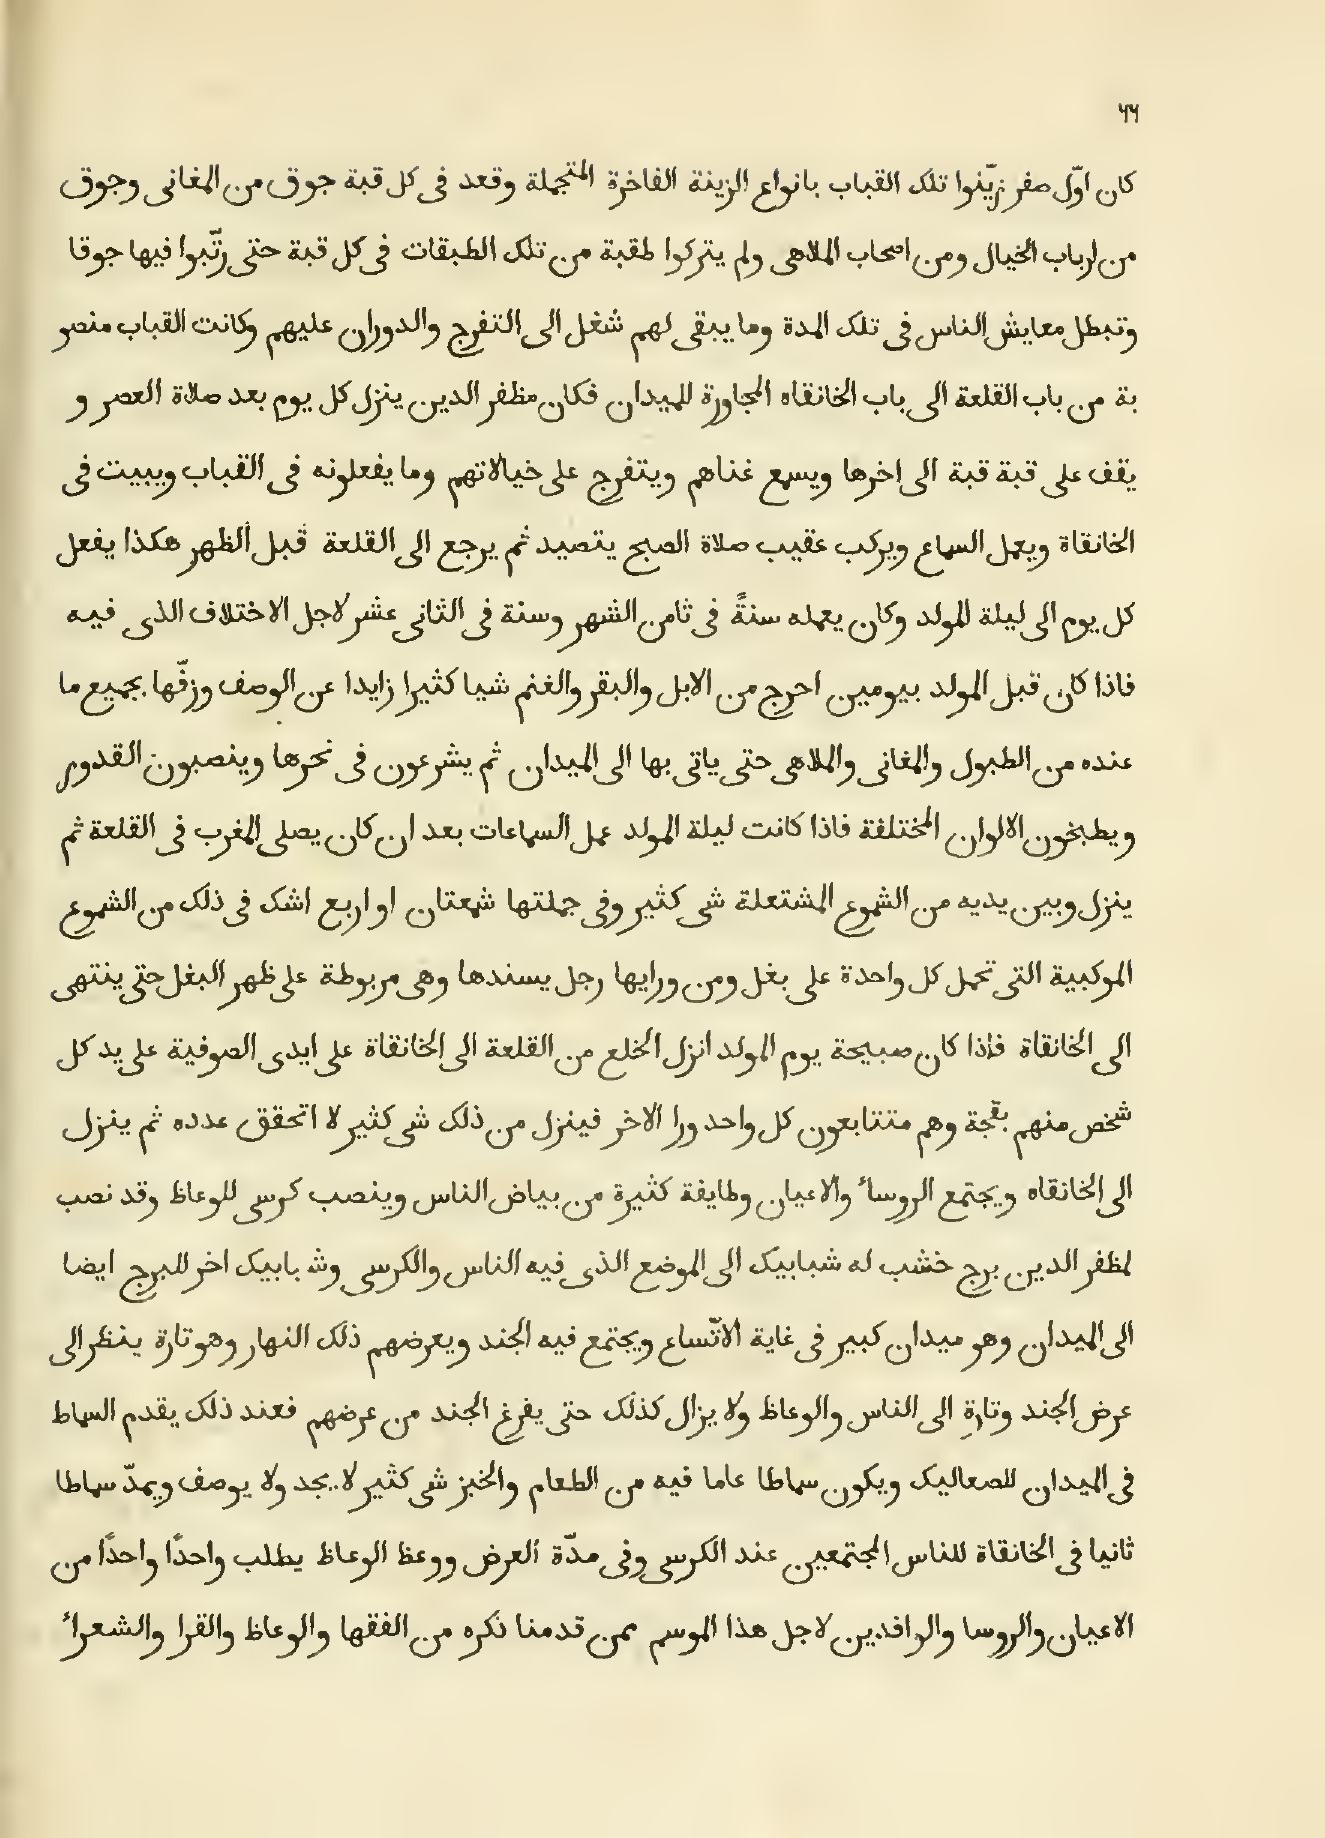 ٦٦
كان اوّل صفر زيّنوا تلك القباب بانواع الزينة الفاخرة المتجملة وقعد فى كل قبة جوق من المغانى وجوق
من ارباب الخيال ومن اصحاب الملاهى ولم يتركوا طقبة من تلك الطبقات فى كل قبة حتى رتّبوا فيها جوقا
وتبطل معايش الناس فى تلك المدة وما يبقى لهم شغل الى التفرج والدوران عليهم وكانت القباب منصو
بة من باب القلعة الى باب الخانقاه المجاورة للميدان فكان مظفر الدين ينزل كل يوم بعد صلاة العصر و
يقف على قبة قبة الى اخرها ويسمع غناهم ويتفرج على خيالاتهم وما يفعلونه فى القباب ويبيت فى
الخانقاة ويعمل السماع ويركب عقيب صلاة الصبح يتصيد ثم يرجع الى القلعة قبل الظهر هكذا يفعل
كل يوم الى ليلة المولد وكان يعمله سنةً فى ثامن الشهر وسنة فى الثانى عشر لاجل الاختلاف الذى فيه
فاذا كان قبل المولد بيومين احرج من الابل والبقر والغنم شيا كثيرا زايدا عن الوصف وزفّها بجميع ما
عنده من الطبول والمغانى والملاهى حتى ياتى بها الى الميدان ثم يشرعون فى نحرها وينصبون القدور
ويطبخون الالوان المختلفة فاذا كانت ليلة المولد عمل السماعات بعد ان كان يصلى المغرب فى القلعة ثم
ينزل وبين يديه من الشموع المشتعلة شى كثير وفى جملتها شمعتان او اربع اشك فى ذلك من الشموع
الموكبية التى تحمل كل واحدة على بغل ومن ورايها رجل يسندها وهى مربوطة على ظهر البغل حتى ينتهى
الى الخانقاة فاذا كان صبيحة يوم المولد انزل الخلع من القلعة الى الخانقاة على ايدى الصوفية على يد كل
شخص منهم بقجة وهم متتابعون كل واحد ورا الاخر فينزل من ذلك شى كثير لا اتحقق عدده ثم ينزل
الى الخانقاه ويجتمع الروساء والاعيان وطايفة كثيرة من بياض الناس وينصب كرسى للوعاظ وقد نصب
لمظفر الدين برج خشب له شبابيك الى الموضع الذى فيه الناس والكرسى وشبابيك اخر للبرج ايضا
الى الميدان وهو ميدان كبير فى غاية الاتّساع ويجتمع فيه الجند ويعرضهم ذلك النهار وهو تارة ينظر الى
عرض الجند وتارة الى الناس والوعاظ ولا يزال كذلك حتى يفرغ الجند من عرضهم فعند ذلك يقدم السماط
فى الميدان للصعاليك ويكون سماطا عاما فيه من الطعام والخبز شى كثير لا يجد ولا يوصف ويمدّ سماطا
ثانيا فى الخانقاة للناس المجتمعين عند الكرسى وفى مدّة العرض ووعظ الوعاظ يطلب واحدًا واحدًا من
الاعيان والروسا والوافدين لاجل هذا الموسم ممن قدمنا ذكره من الفقها والوعاظ والقرا والشعراء